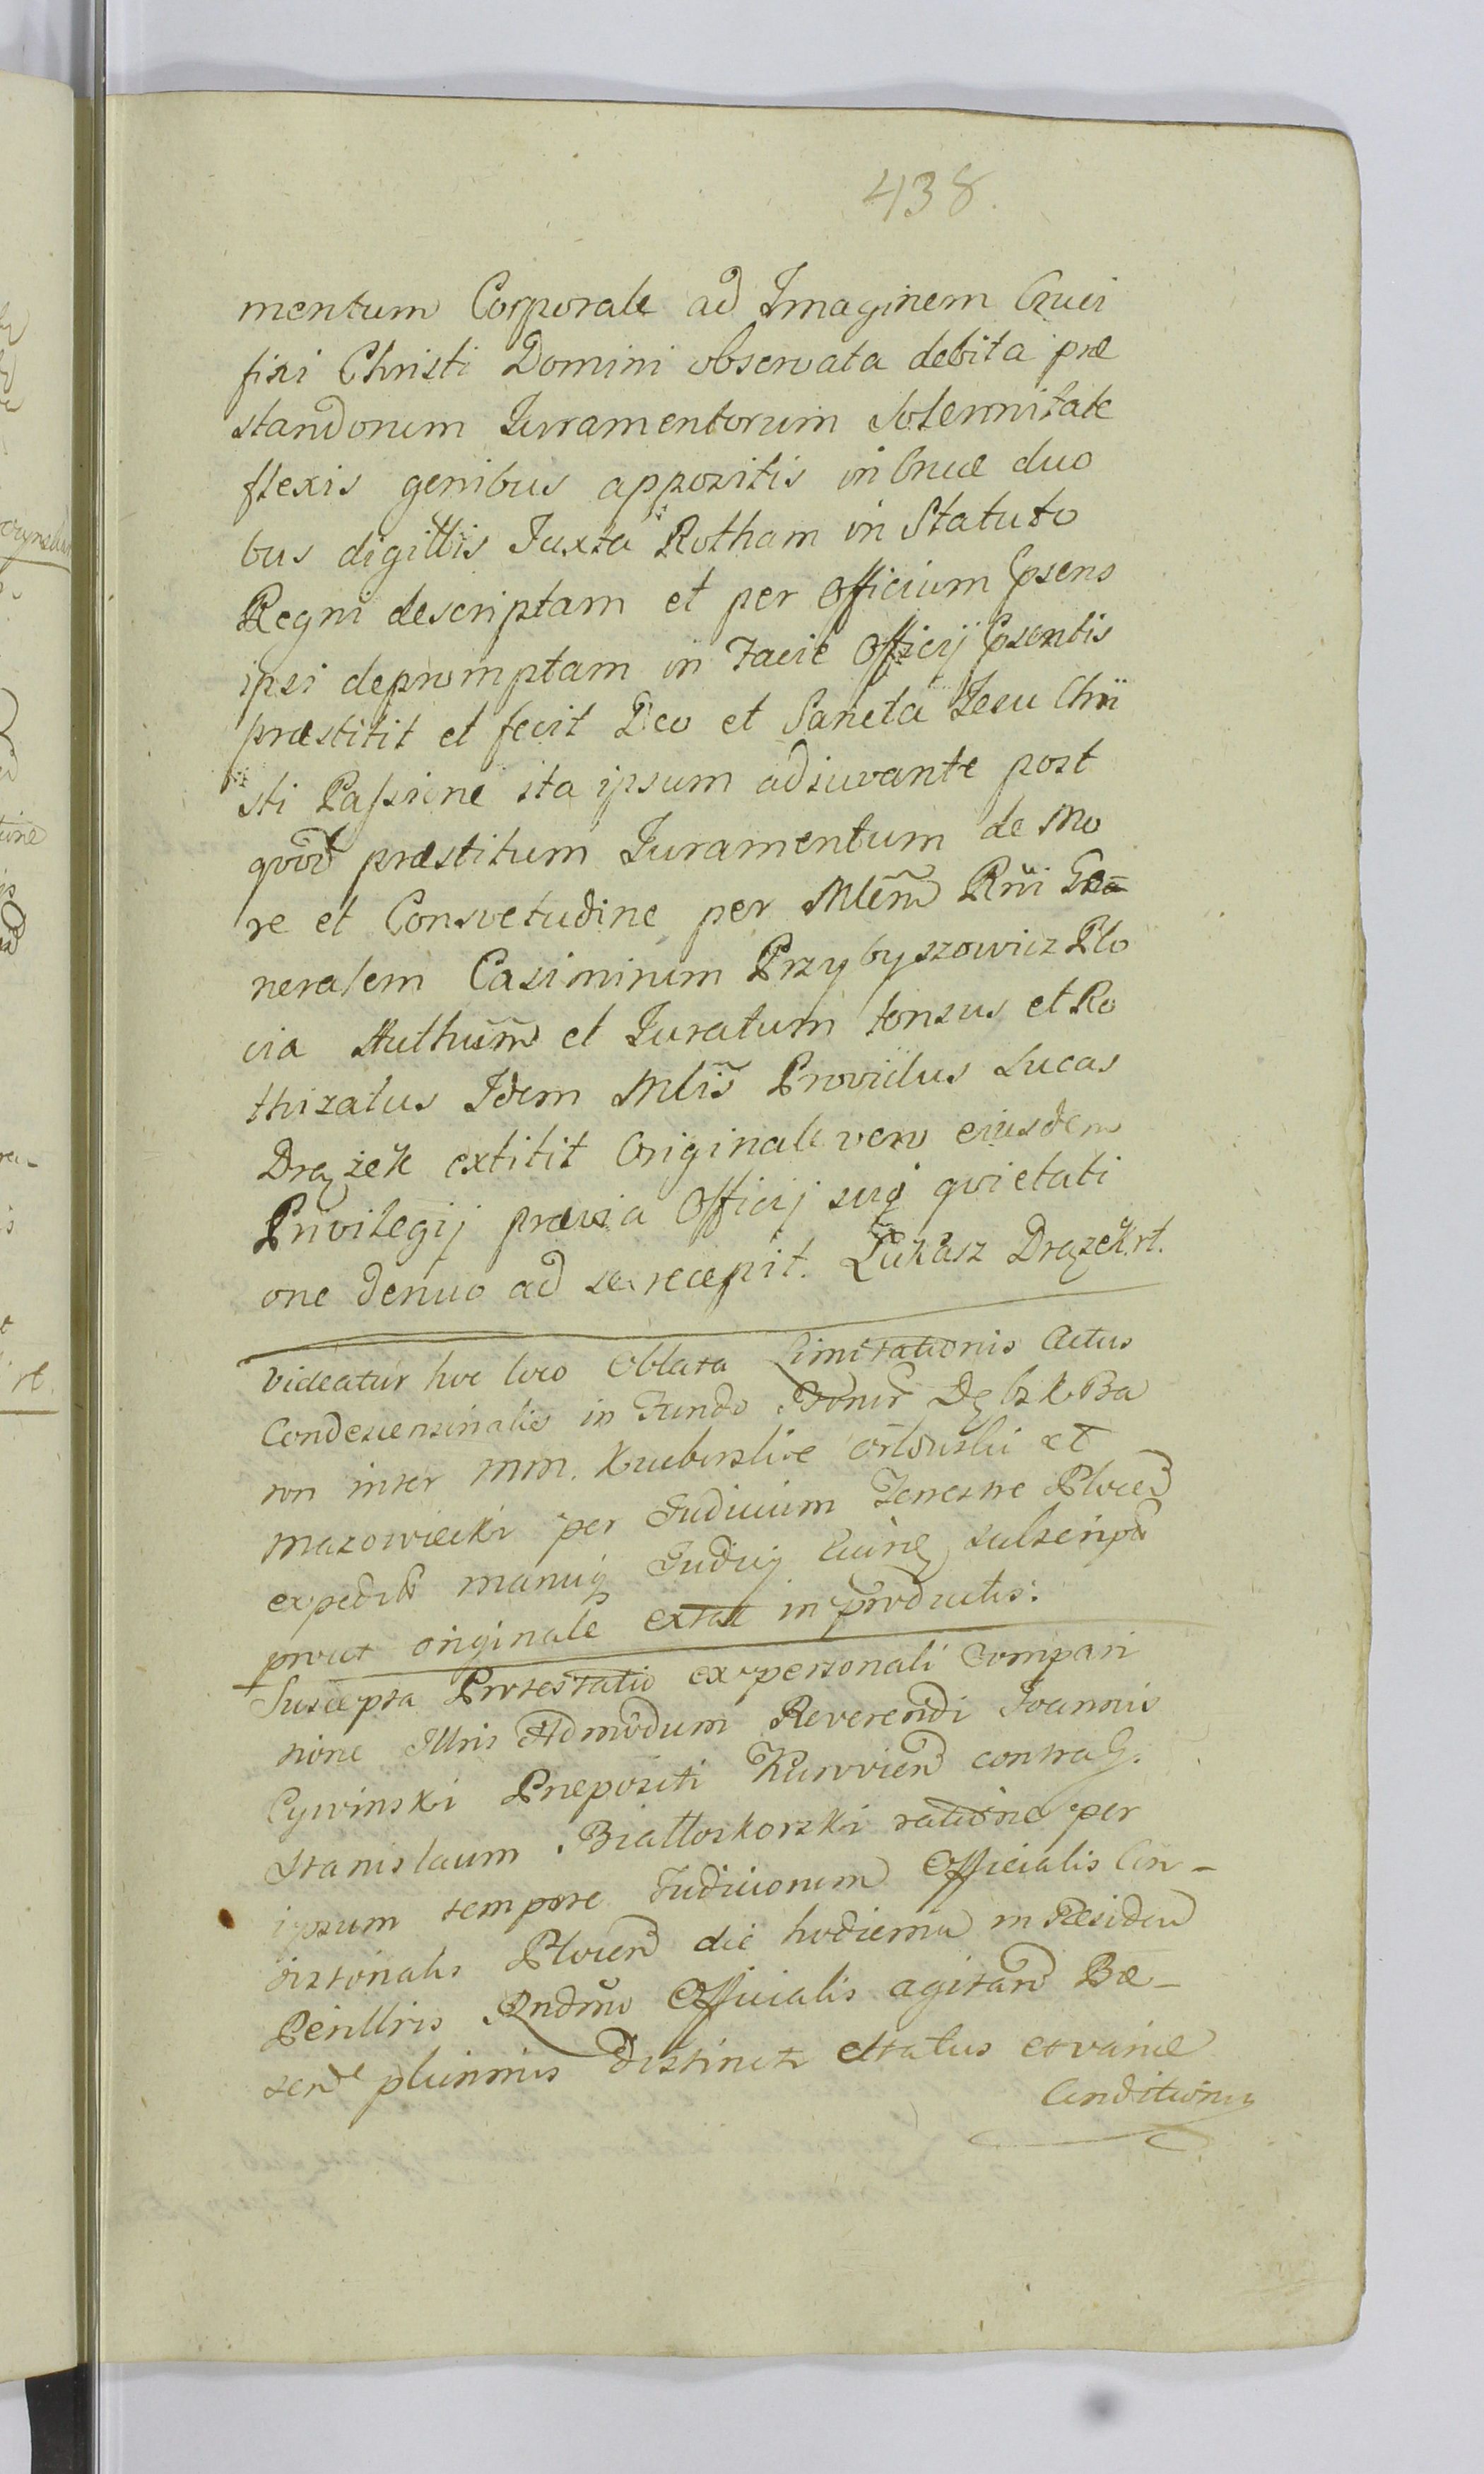 438.
mentum Corporale ad Imaginem Cruci
fixi Christi Domini observata debita præ
standorum Iurramentorum Solennitate
flexis genibus appositis in Cruce duo
bus digittis Juxta Rotham in Statuto
Regni descriptam et per Officium Ppsens
ipsi depromptam in Facie Officij Ppsentis
præstitit et fecit Deo et Sancta Jesu Chri
sti Passione ita ipsum adiuvante post
qvod præstitum Iuramentum de Mo
re et Consvetudine per Mlem Rni Ge
neralem Casimirum Przybyszowicz Plo
cia Authum et Iuratum tonsus et Ro
thizatus Idem Mlis Providus Lucas
Drązek extitit Originale vero eiusdem
Privilegij prævia Officij sui qvietati
one denuo ad se recepit. Łukasz Drązek rt.
Videatur hoc loco Oblata Limitationis Actus
Condescensinalis in Fundo Bonor Dębsk Ba
ron inter MM. Orłowski et
Mazowiecki per Judicium Terrestre Plocen
expedit manuq Judicij subscript
prout originale extat in productis.
Suscepta Protestatio ex personali Compari
tione Illris Admodum Reverendi Joannis
Cywinski Præpositi Kurovien contra G.
Stanislaum Białłoskorski ratione per
ipsum tempore Judiciorum Officialis Con-
sistorialis Plocen die hodierna in Residen
Perillris Rndmo Officialis agitan Præ-
send plurimis distinct Status et variæ
Conditionis